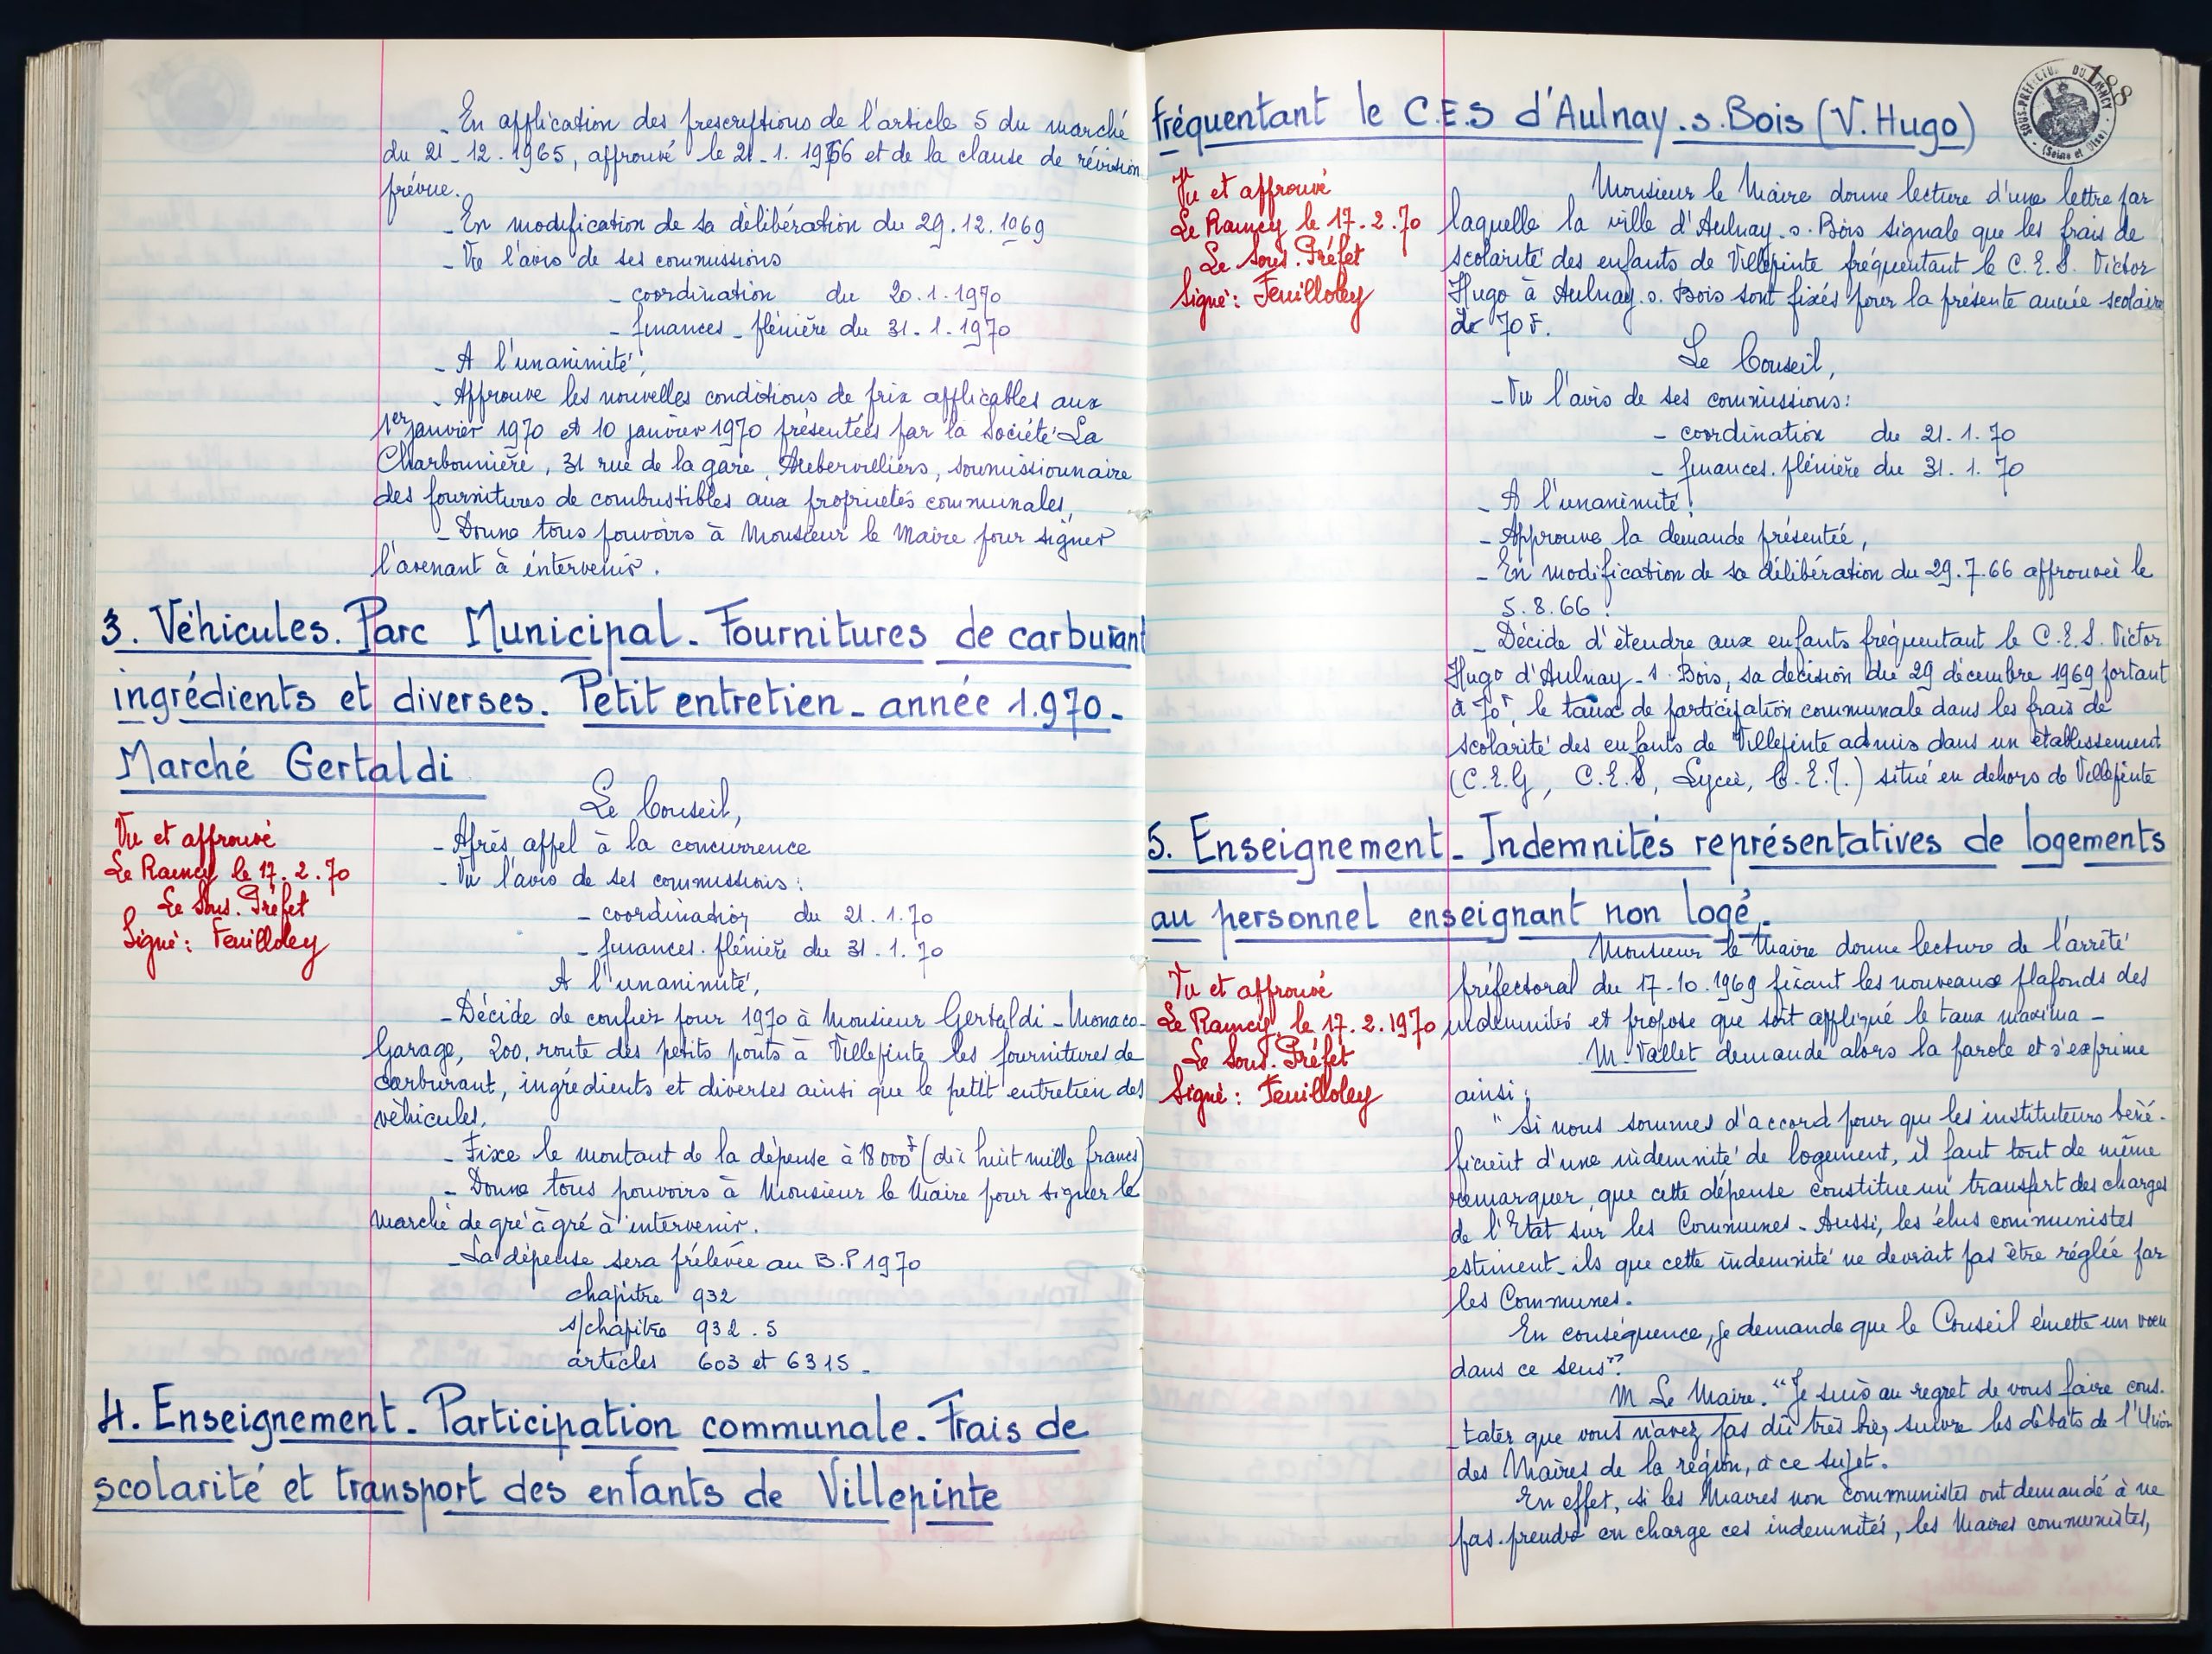 - En application des prescriptions de l'article 5 du marché
du 21-12.1965, approuvé le 21-1.1966 et de la clause de révision
prévue.
- En modification de sa délibération du 29.12.1969
- Vu l'avis de ses commissions
- coordination du 20.1.1970
- finances-plénière du 31.1.1970
- A l'unanimité,
- Approuve les nouvelles conditions de prix applicables aux
1er janvier 1970 et 10 janvier 1970 présentées par la Société La
Charbonnière, 31 rue de la gare, Aubervilliers, soumissionnaire
des fournitures de combustibles aux propriétés communales,
- Donne tous pouvoirs à Monsieur le Maire pour signer
l'avenant à intervenir.
3. Véhicules. Parc Municipal - Fournitures de carburant
ingrédients et diverses. Petit entretien - année 1.970 -
Marché Gertaldi
Le Conseil,
Vu et approuvé
Le Raincy le 17.2.70
Le Sous. Préfet
Signé : Feuilloley
- Après appel à la concurrence
- Vu l'avis de ses commissions :
- coordination du 21.1.70
- finances. plénière du 31.1.70
A l'unanimité,
- Décide de confier pour 1970 à Monsieur Gertaldi - Monaco-
Garage, 200, route des petits ponts à Villepinte les fournitures de
carburant, ingrédients et diverses ainsi que le petit entretien des
véhicules,
- Fixe le montant de la dépense à 18000F (dix huit mille francs)
- Donne tous pouvoirs à Monsieur le Maire pour signer le
marché de gré à gré à intervenir.
- La dépense sera prélevée au B.P 1970
chapitre 932
s/chapitre 932.5
articles 603 et 6315 -
4. Enseignement - Participation communale - Frais de
scolarité et transport des enfants de Villepinte
188
SOUS-PRÉFECTURE DU RAINCY
(Seine et Oise)
fréquentant le C.E.S d'Aulnay.s.Bois (V. Hugo)
Vu et approuvé
Le Raincy le 17.2.70
Le Sous. Préfet
Signé : Feuilloley
Monsieur le Maire donne lecture d'une lettre par
laquelle la ville d'Aulnay.s.Bois signale que les frais de
scolarité des enfants de Villepinte fréquentant le C.E.S. Victor
Hugo à Aulnay.s.Bois sont fixés pour la présente année scolaire
de 70F.
Le Conseil,
- Vu l'avis de ses commissions :
- coordination du 21.1.70
- finances. plénière du 31.1.70
- A l'unanimité,
- Approuve la demande présentée,
- En modification de sa délibération du 29.7.66 approuvée le
5.8.66,
- Décide d'étendre aux enfants fréquentant le C.E.S. Victor
Hugo d'Aulnay-s.Bois, sa décision du 29 décembre 1969 portant
à 70F, le taux de participation communale dans les frais de
scolarité des enfants de Villepinte admis dans un établissement
(C.E.G, C.E.S, Lycée, C.E.T.) situé en dehors de Villepinte
5. Enseignement - Indemnités représentatives de logements
au personnel enseignant non logé.
Vu et approuvé
Le Raincy, le 17.2.1970
Le Sous. Préfet
Signé : Feuilloley
Monsieur le Maire donne lecture de l'arrêté
préfectoral du 17-10.1969 fixant les nouveaux plafonds des
indemnités et propose que soit appliqué le taux maxima -
M. Vallet demande alors la parole et s'exprime
ainsi :
"Si nous sommes d'accord pour que les instituteurs béné-
ficient d'une indemnité de logement, il faut tout de même
remarquer, que cette dépense constitue un transfert des charges
de l'Etat sur les Communes - Aussi, les élus communistes
estiment-ils que cette indemnité ne devrait pas être réglée par
les Communes.
En conséquence, je demande que le Conseil émette un voeu
dans ce sens"
M Le Maire. "Je suis au regret de vous faire cons-
-tater que vous n'avez pas dû très bien suivre les débats de l'Union
des Maires de la région, à ce sujet.
En effet, si les Maires non communistes ont demandé à ne
pas. prendre en charge ces indemnités, les Maires communistes,